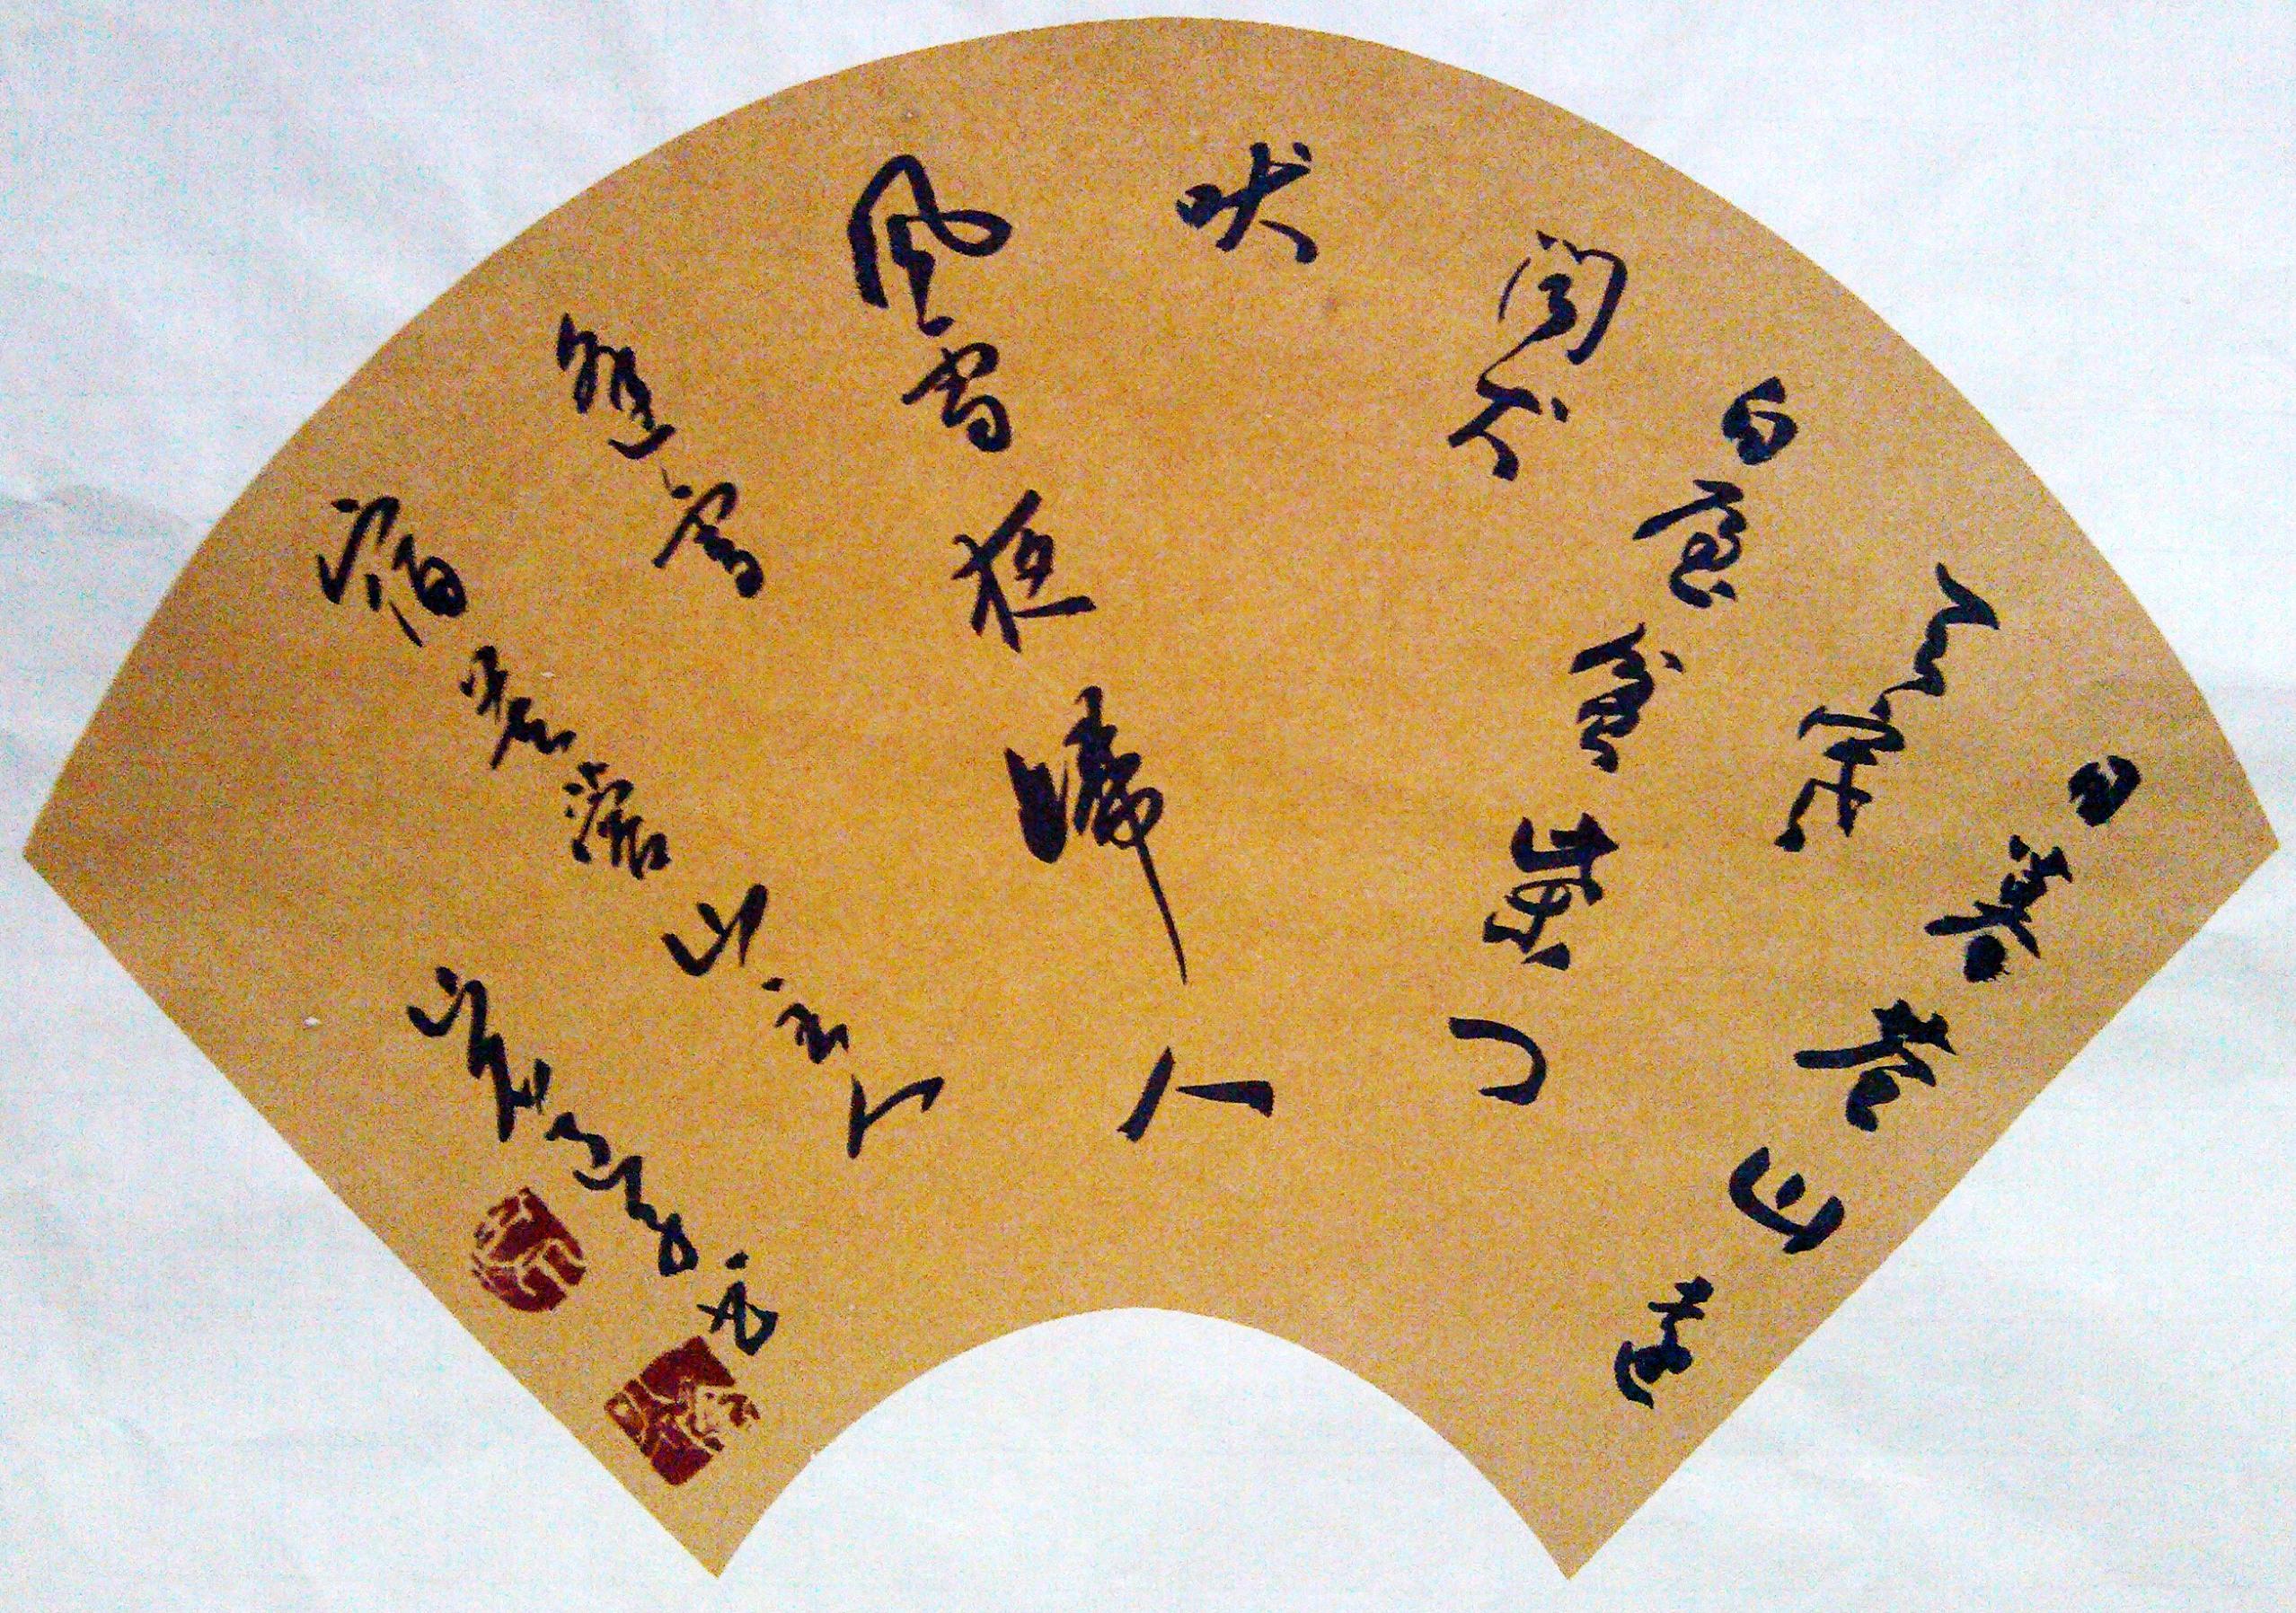 日暮蒼山遠
天寒
白屋貧柴門
聞犬
吠
風雪夜歸人
逢雪
宿芙蓉山主人